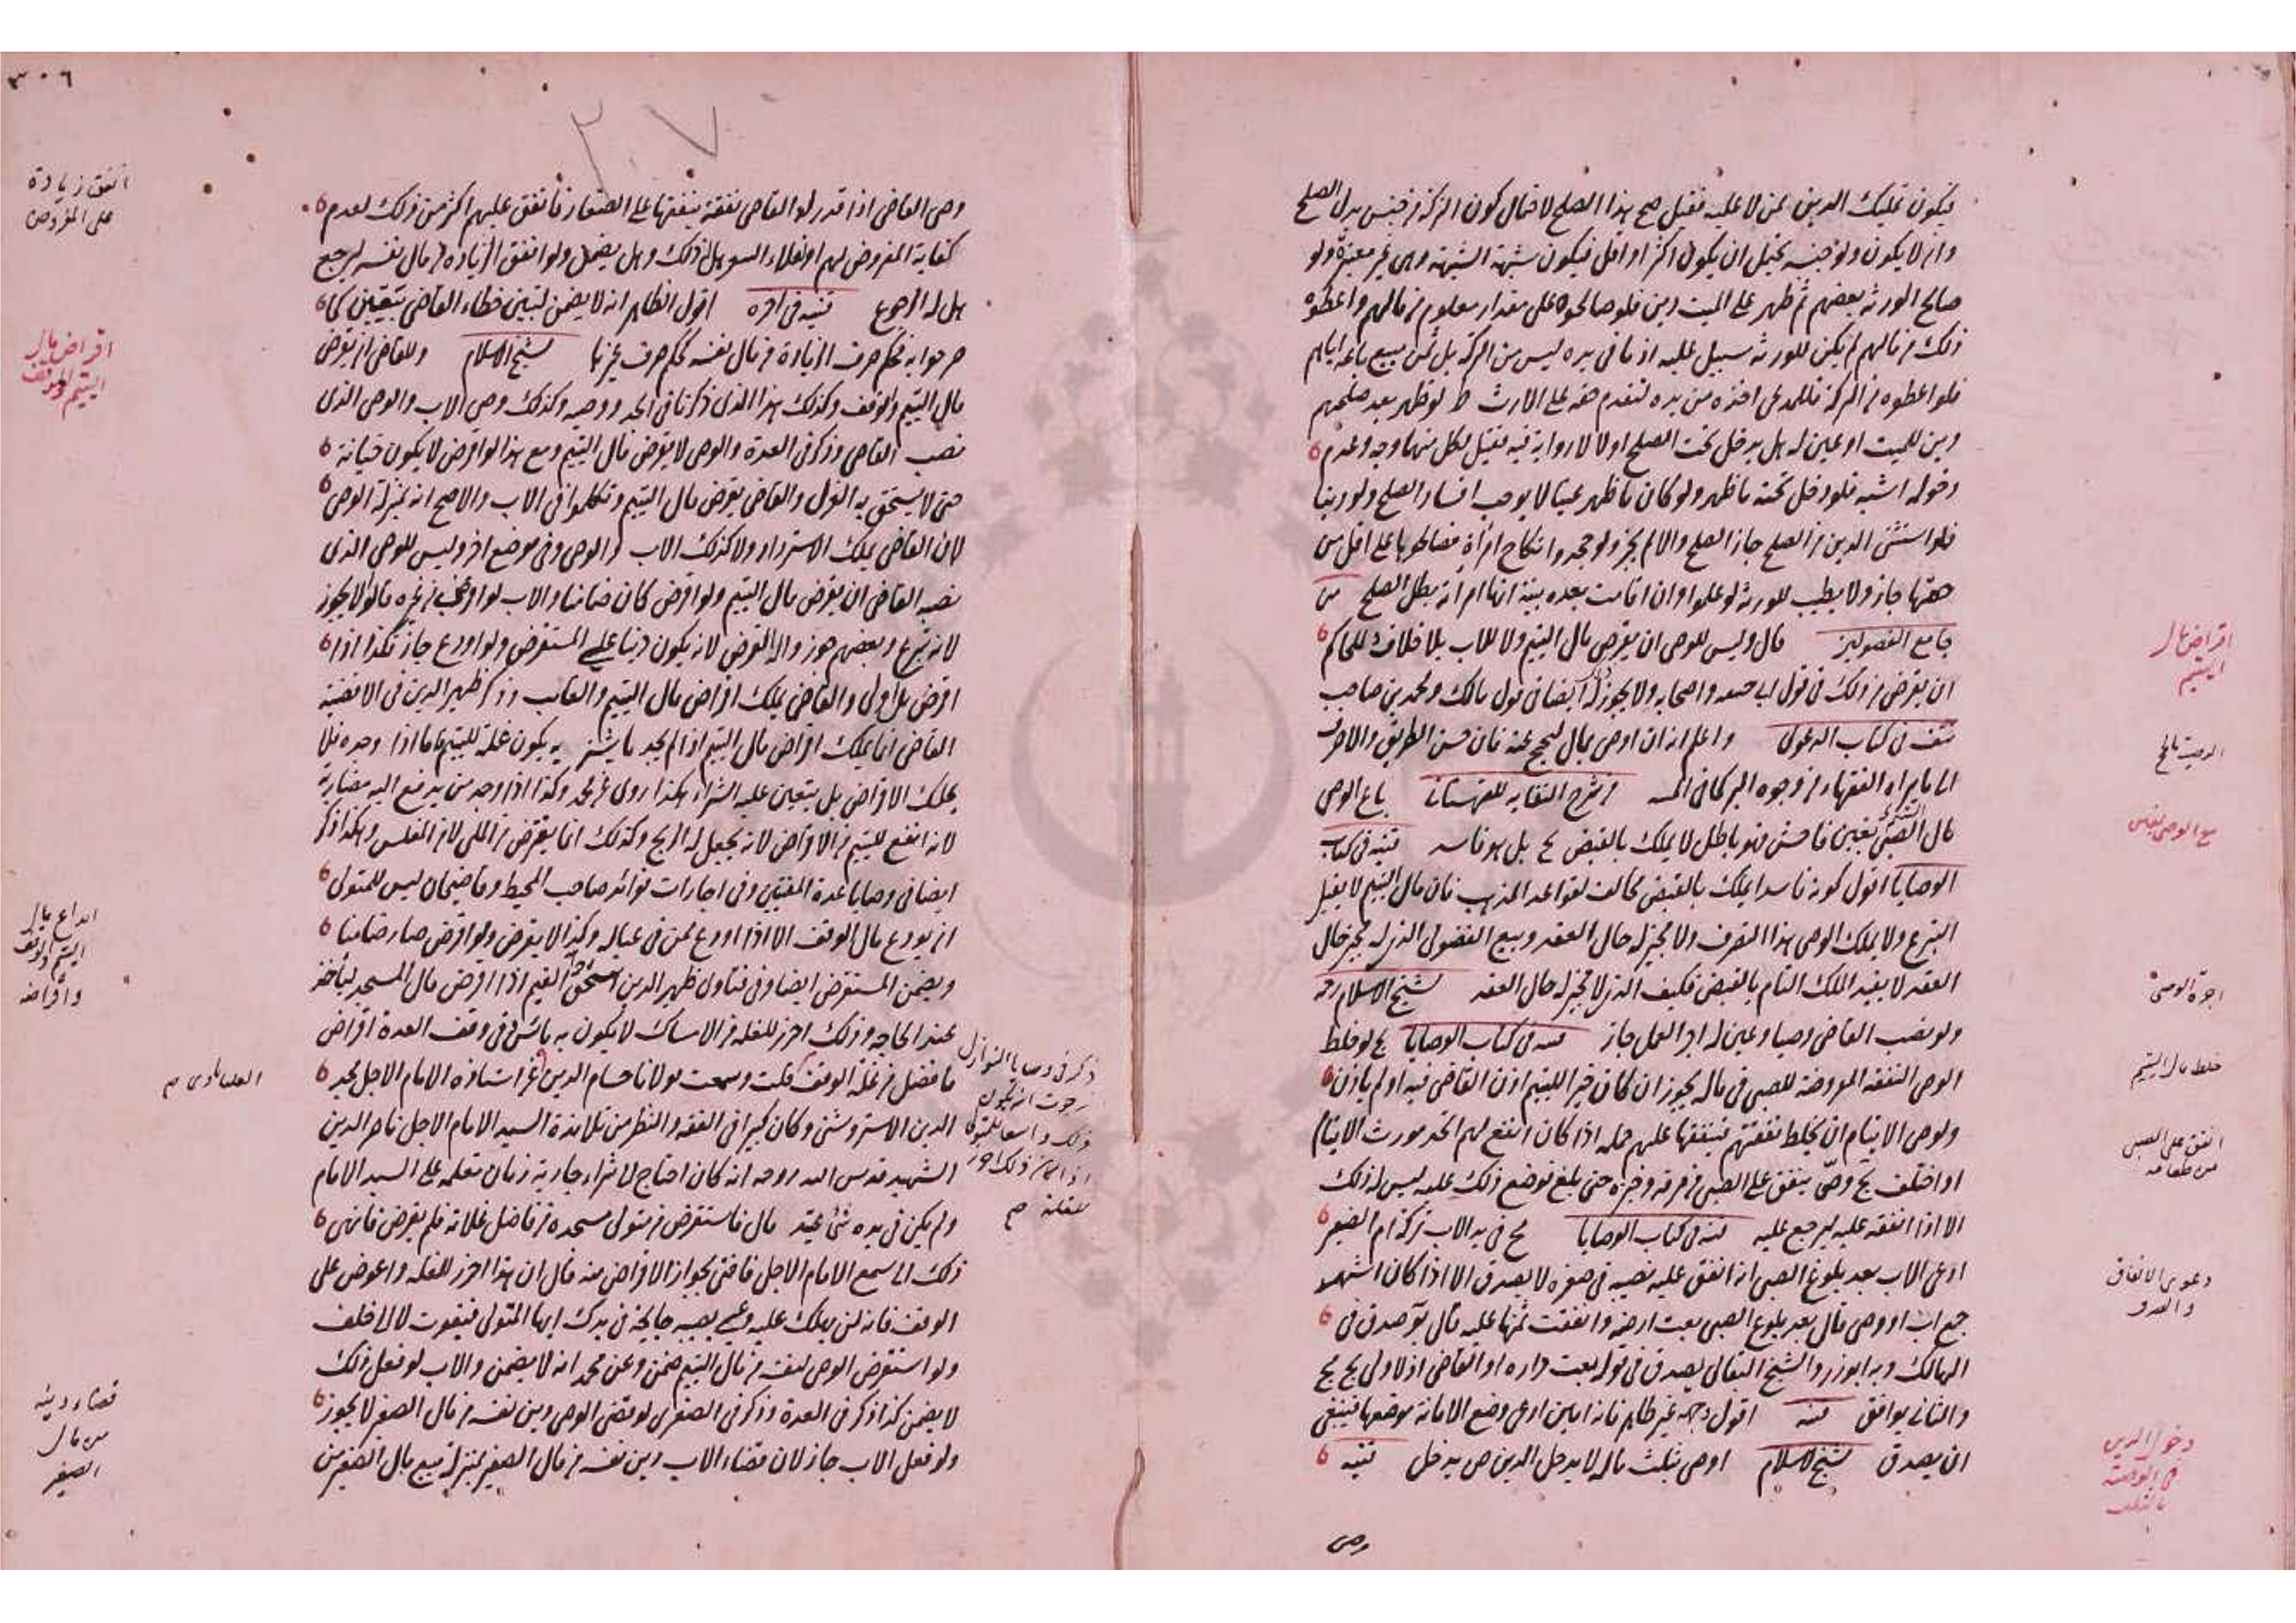 فيكون تمليك الدين ممن لا عليه فقيل صح هذا الصلح لاحتمال كون التركة من جنس بدل الصلح
وان لا يكون ولو جنسه يحتمل ان يكون اكثر او اقل فيكون شبهة الشبهة وهي غير معتبرة ولو
صالح الورثة بعضهم ثم ظهر على الميت دين فلو صالحوه على مقدار معلوم من مالهم واعطوه
ذلك من مالهم لم يكن للورثة سبيل عليه اذ ما في يده ليس من التركة بل ثمن مبيع باعه اياهم
فلو اعطوه من التركة فللمدعي اخذه من يده لتقدم حقه على الارث ط لو ظهر بعد صلحهم
دين للميت او عين له هل يدخل تحت الصلح او لا لا رواية فيه فقيل لكل منهما وجه وعدم
دخوله اشبه فلو دخل تحته ما ظهر ولو كان ما ظهر عينا لا يوجب افساد الصلح ولو دينا
فلو استثنى الدين من الصلح جاز الصلح والا لم يجز ولو جحدوا نكاح امرأة فصالحوها على اقل من
حقها جاز ولا يطيب للورثة لو علموا وان اقامت بعده بينة انها امرأته بطل الصلح من
جامع الفصولين قال وليس للوصي ان يقرض مال اليتيم ولا للاب بلا خلاف وللحاكم
ان يقرض من ذلك في قول ابي حنيفة واصحابه ولا يجوز له ايضا في قول مالك ومحمد بن صاحب
نتف في كتاب الدعوى واعلم انه ان اوصى بمال ليحج عنه فان حسن الطريق والا صرف
الى ما يراه الفقهاء من وجوه البر كما في من شرح النقاية للقهستاني باع الوصي
مال الصبي بغبن فاحش فهو باطل لا يملك بالقبض بل هو فاسد قنية في كتاب
الوصايا اقول كونه فاسدا يملك بالقبض مخالف لقواعد المذهب فان مال اليتيم لا يقبل
التبرع ولا يملك الوصي هذا التصرف ولا مجيز له حال العقد وبيع الفضولي الذي له مجيز حال
العقد لا يفيد الملك التام بالقبض فكيف الذي لا مجيز له حال العقد شيخ الاسلام رحمه
ولو نصب القاضي وصيا وعين له اجر العمل جاز قنية في كتاب الوصايا لو خلط
الوصي النفقة المفروضة للصبي في ماله يجوز ان كان خيرا لليتيم اذن القاضي فيه او لم ياذن
ولوصي الايتام ان يخلط نفقتهم فينفقها عليهم جملة اذا كان انفع لهم اتحد مورث الايتام
او اختلف وصي ينفق على الصبي من مرقه وخبزه حتى بلغ فوضع ذلك عليه ليس له ذلك
الا اذا انفقه عليه ليرجع عليه قنية في كتاب الوصايا في يد الاب تركة ام الصغير
ادعى الاب بعد بلوغ الصبي انه انفق عليه نصيبه في صغره لا يصدق الا اذا كان اشهد
جمع اب او وصي قال بعد بلوغ الصبي بعت ارضه وانفقت ثمنها عليه قال صدق في
الهالك وبه ابو زر والشيخ البقالي يصدق في قوله بعت داره او القاضي اذ لا ولي
والثاني يوافق قنية اقول وجهه غير ظاهر فانه امين ادعى وضع الامانة موضعها فينبغي
ان يصدق شيخ الاسلام اوصى بثلث ماله لا يدخل الدين ص يدخل قنية
وصي
اقراض مال
اليتيم
الوصية بالحج
بيع الوصي بغبن
اجرة الوصي
خلط مال اليتيم
انفق على الصبي
من طعامه
دعوى الانفاق
دخول الدين
في الوصية
بالثلث
٣٠٦
٣٠٧
وصي القاضي اذا قدر له القاضي نفقة ينفقها على الصغار فانفق عليهم اكثر من ذلك لعدم
كفاية المفروض لهم او لغلاء السعر هل له ذلك وهل يضمن ولو انفق الزيادة من مال نفسه ليرجع
هل له الرجوع قنية في آخره اقول الظاهر انه لا يضمن لتبين خطاء القاضي بتعيين كما
صرحوا به فحكم صرف الزيادة من مال نفسه كحكم صرف غيرها شيخ الاسلام وللقاضي ان يقرض
مال اليتيم والوقف وكذلك هذا الذي ذكرنا في الجد ووصيه وكذلك وصي الاب والوصي الذي
نصبه القاضي وذكر في العدة والوصي لا يقرض مال اليتيم ومع هذا لو اقرض لا يكون خيانة
حتى لا يستحق به العزل والقاضي يقرض مال اليتيم وتكلموا في الاب والاصح انه بمنزلة الوصي
لان القاضي يملك الاسترداد ولا كذلك الاب والوصي وفي موضع آخر وليس للوصي الذي
نصبه القاضي ان يقرض مال اليتيم ولو اقرض كان ضامنا والاب لو اقرض من غيره قالوا لا يجوز
لانه تبرع وبعضهم جوزوا القرض لانه يكون دينا على المستقرض ولو اودع جاز فكذا اذا
اقرض بل اولى والقاضي يملك اقراض مال اليتيم والغائب وذكر ظهير الدين في الاقضية
القاضي انما يملك اقراض مال اليتيم اذا لم يجد ما يشتري به يكون غلة لليتيم فاما اذا وجده فلا
يملك الاقراض بل يتعين عليه الشراء هكذا روي عن محمد وكذا اذا وجد من يدفع اليه مضاربة
لانه انفع لليتيم من الاقراض لانه يجعل له الربح وكذلك انما يقرض من الملي لا من المفلس وهكذا ذكر
ايضا في وصايا عدة المفتين وفي اجارات فوائد صاحب المحيط وقاضيخان ليس للمتولي
ان يودع مال الوقف الا اذا اودع ممن في عياله وكذا لا يقرض ولو اقرض صار ضامنا
ويضمن المستقرض ايضا وفي فتاوى ظهير الدين اسحق القيم اذا اقرض مال المسجد ليأخذ
عند الحاجة وذلك احرز للغلة من الامساك لا يكون به بأس وفي وقف العدة اقراض
ما فضل من غلة الوقف قلت وسمعت مولانا حسام الدين عن استاذه الامام الاجل مجد
الدين الاستروشني وكان كبيرا في الفقه والنظر من تلامذة السيد الامام الاجل ناصر الدين
الشهيد قدس الله روحه انه كان احتاج لا شراء جارية زمان تعلمه على السيد الامام
ولم يكن في يده شيء يعتد قال فاستقرض من متولي مسجده من فاضل غلاته فلم يقرض فانهى
ذلك الى سمع الامام الاجل فافتى بجواز الاقراض منه قال ان هذا احرز للغلة واعوض على
الوقف فانه لن يهلك عليه وعسى يصيبه جائحة في يدك ايها المتولي فيفوت لا الى خلف
ولو استقرض الوصي لنفسه من مال اليتيم ضمن وعن محمد انه لا يضمن والاب لو فعل ذلك
لا يضمن كذا ذكر في العدة وذكر في الصغرى لو قضى الوصي دين نفسه من مال الصغير لا يجوز
ولو فعل الاب جاز لان قضاء الاب دين نفسه من مال الصغير بمنزلة بيع مال الصغير من
ذكر في وصايا النوازل
رجوت ان يكون
ذلك واسعا للمتولي
اذا كان ذلك احرز
للغلة صح
انفق زيادة
على المفروض
اقراض مال
اليتيم والوقف
ايداع مال
اليتيم والوقف
واقراضه
قضاء دينه
من مال
الصغير